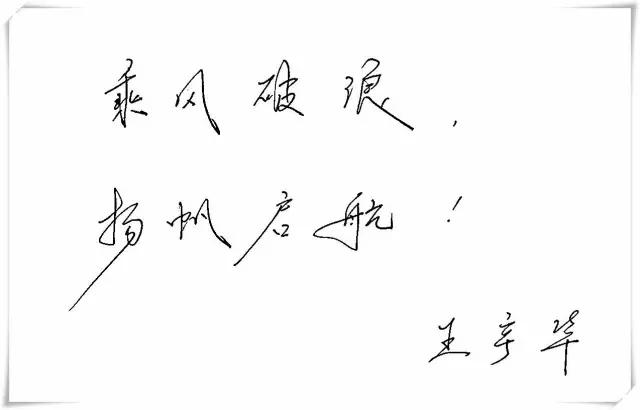 乘风破浪，
扬帆启航！
王亨华